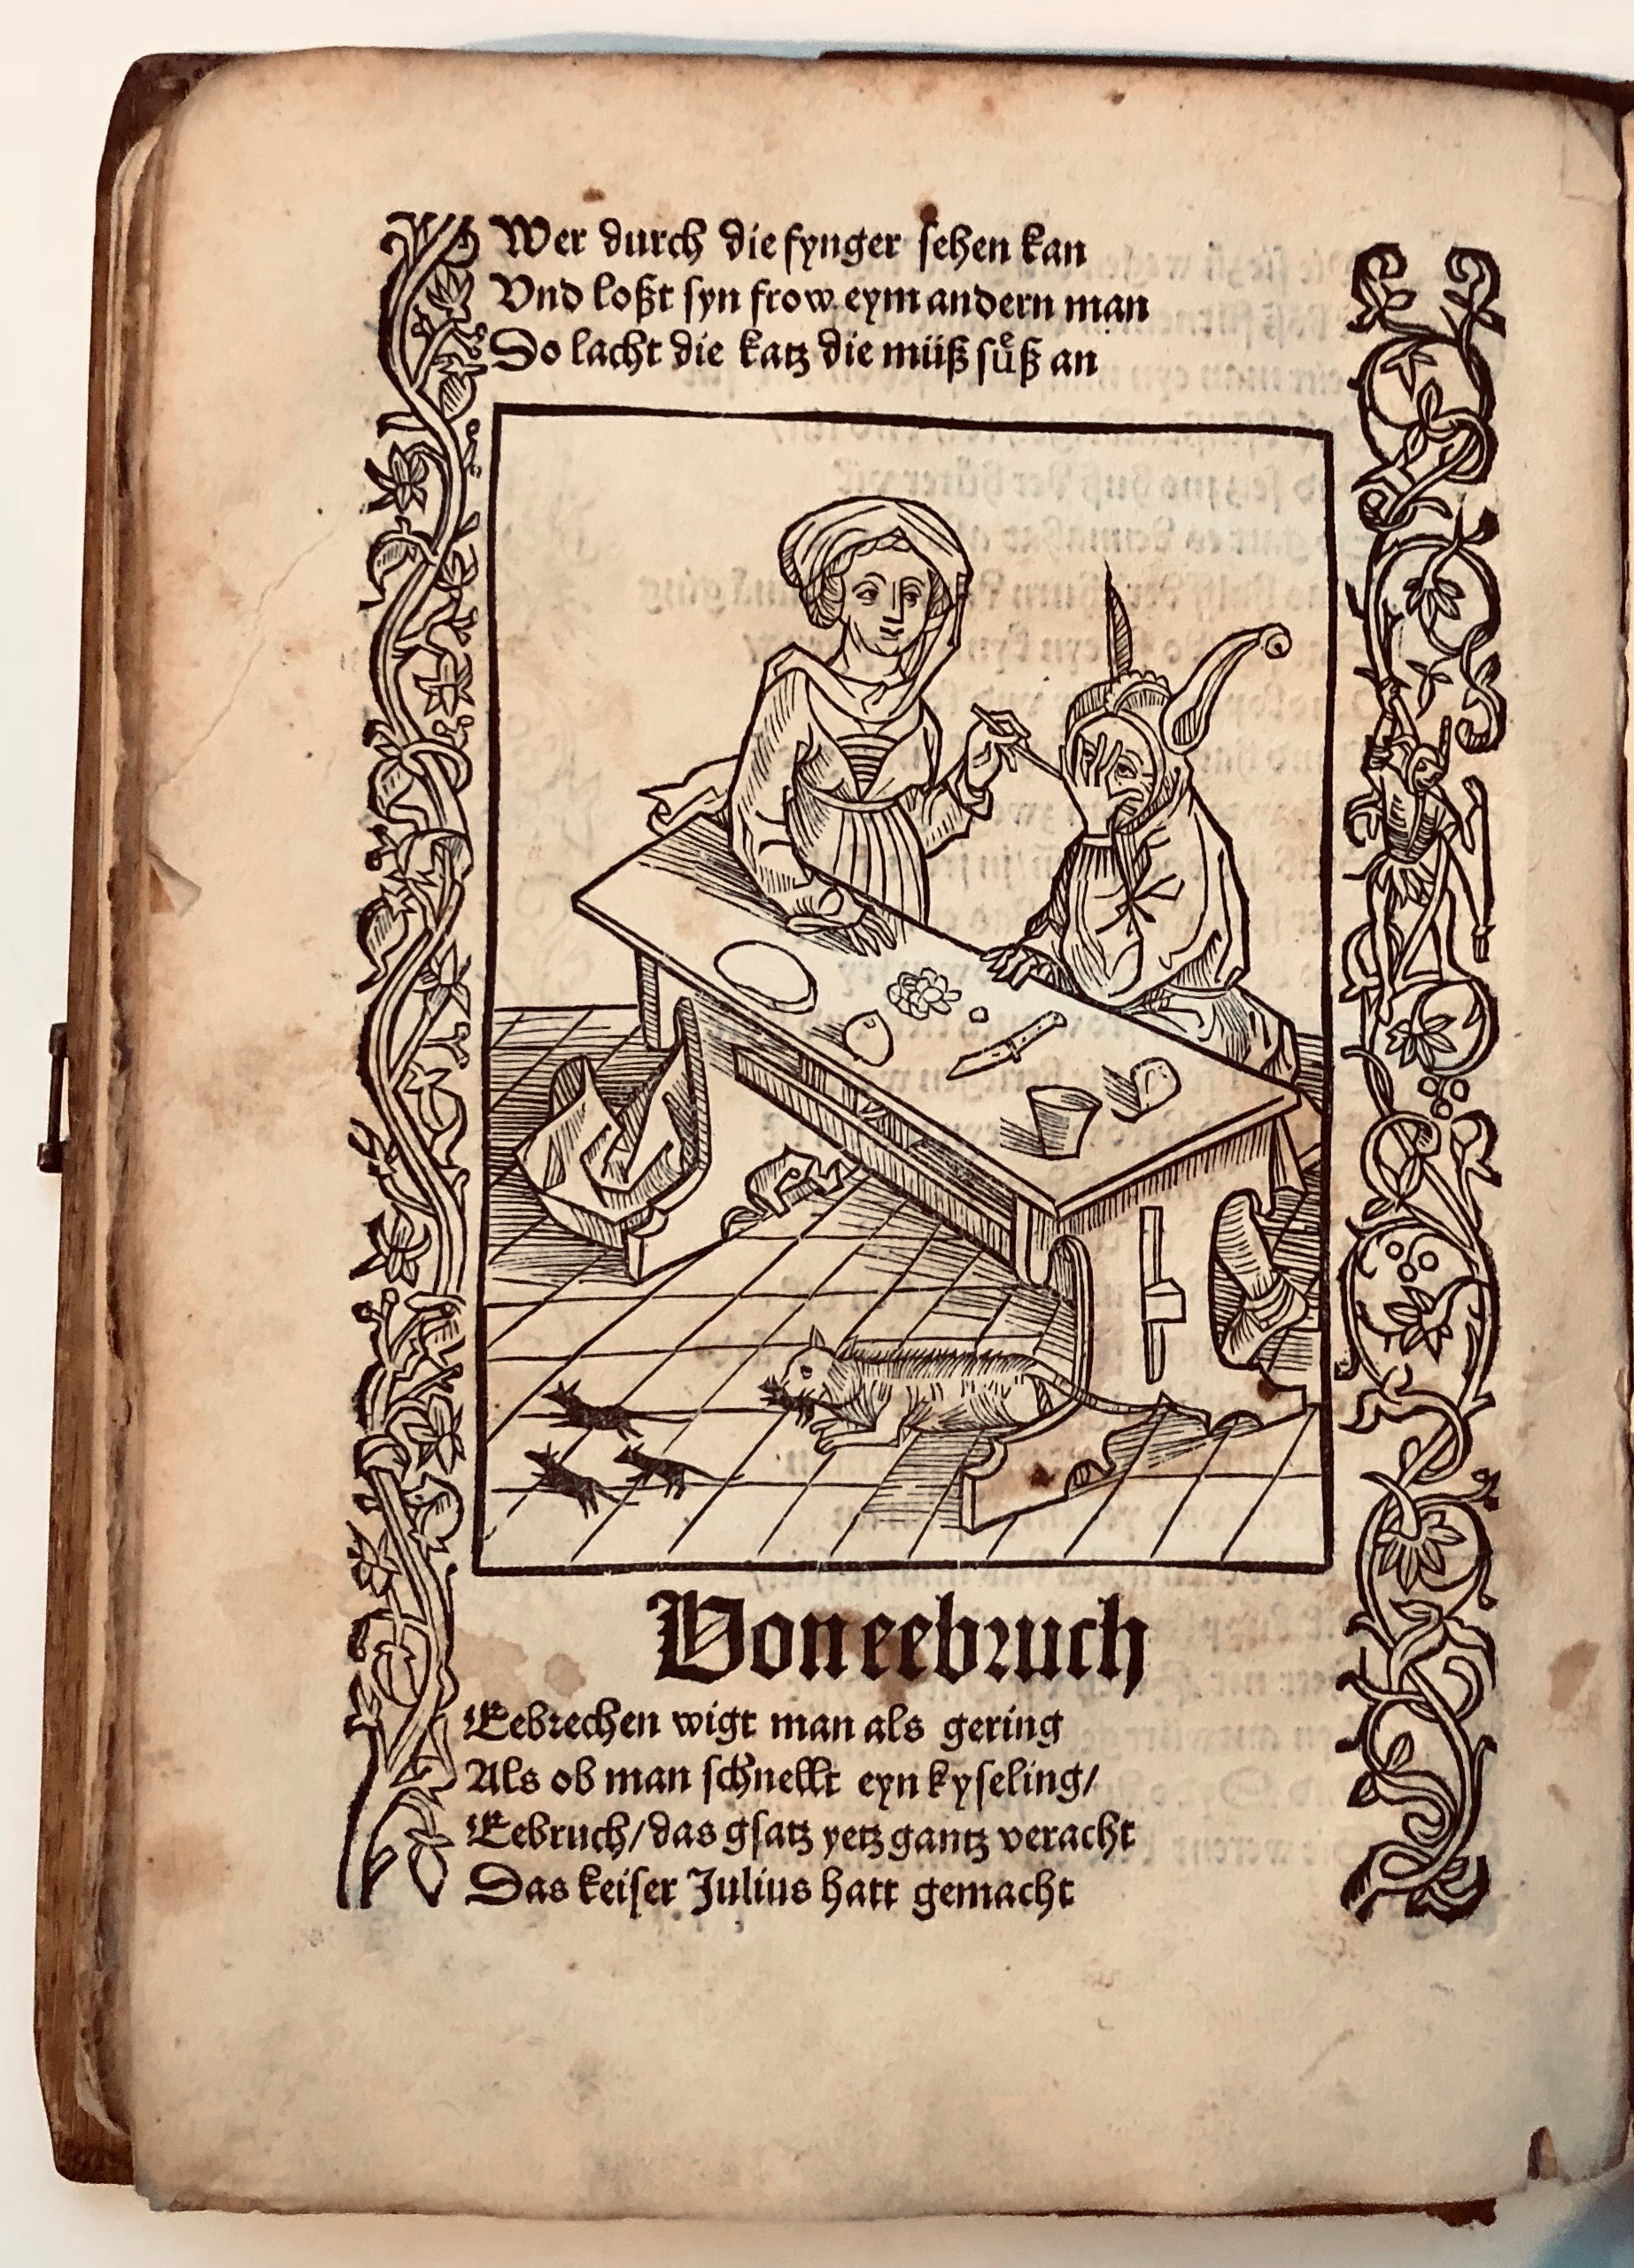 Wer durch die fynger sehen kan
Vnd loßt syn frow eym andern man
So lacht die katz die müß suͤß an
Von eebruch
Eebrechen wigt man als gering
Als ob man schnellt eyn kyseling/
Eebruch/das gsatz yetz gantz veracht
Das keiser Julius hatt gemacht